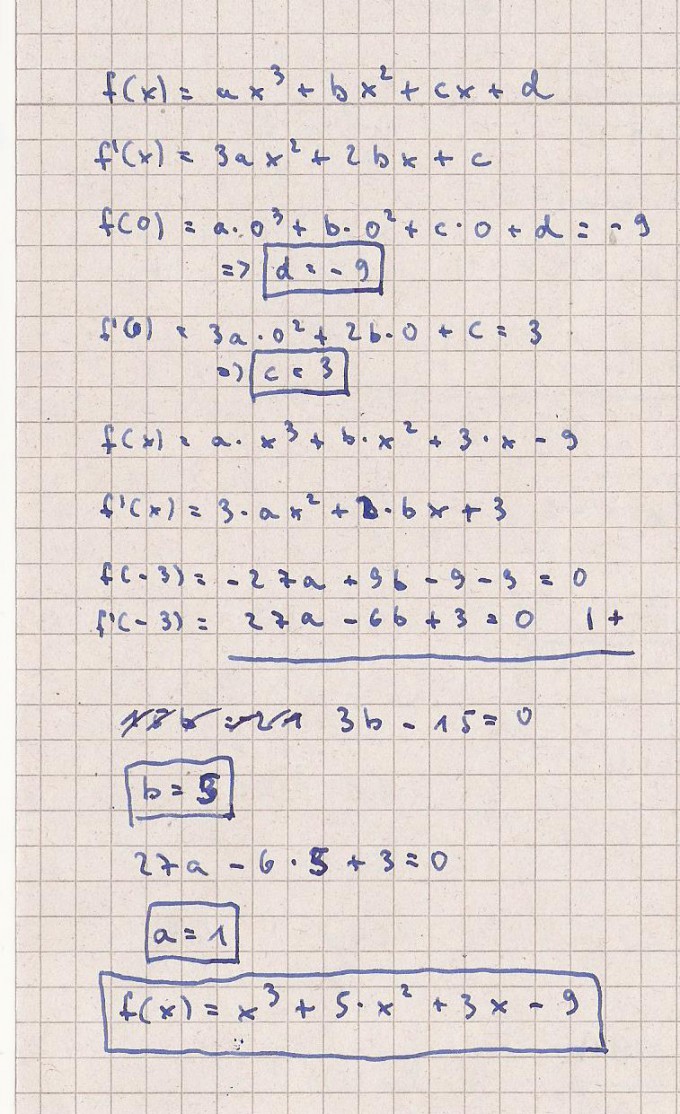 f(x) = ax³ + bx² + cx + d
f'(x) = 3ax² + 2bx + c
f(0) = a·0³ + b·0² + c·0 + d = -9
=> d = -9
f'(0) = 3a·0² + 2b·0 + c = 3
=> c = 3
f(x) = a·x³ + b·x² + 3·x - 9
f'(x) = 3·ax² + 2·bx + 3
f(-3) = -27a + 9b - 9 - 9 = 0
f'(-3) = 27a - 6b + 3 = 0 | +
3b - 15 = 0
b = 5
27a - 6·5 + 3 = 0
a = 1
f(x) = x³ + 5·x² + 3x - 9